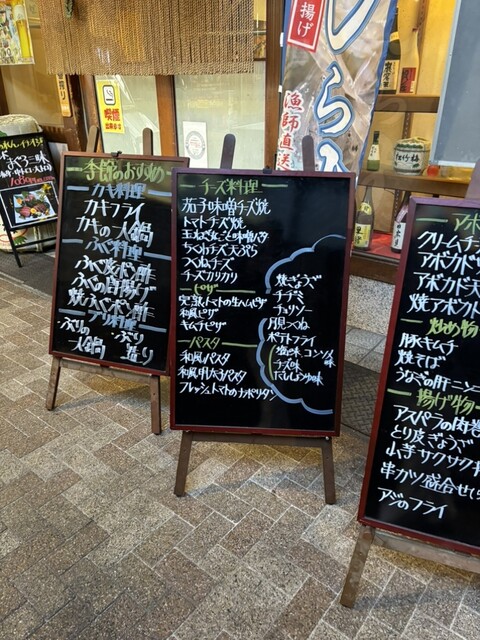 季節のおすすめ
カキ料理
カキフライ
カキの一人鍋
ふぐ料理
ふぐ皮ポン酢
ふぐの唐揚げ
焼ふぐポン酢
ブリ料理
ぶりの
一人鍋
ぶり
チーズ料理
茄子味噌チーズ焼
トマトチーズ焼
ちくわチーズ天ぷら
つくねチーズ
チーズカリカリ
ピザ
完熟トマトの生ハムピザ
和風ピザ
キムチピザ
パスタ
和風パスタ
和風明太子パスタ
フレッシュトマトのナポリタン
焼ぎょうざ
チヂミ
チョリソー
月見つくね
ポテトフライ
塩味
コンソメ味
チーズ味
だししょうゆ味
アボ
クリームチ
アボカド
アボカド天
焼アボカド
炒め物
豚キムチ
焼そば
うなぎの肝ニンニ
揚げ物
アスパラの肉巻
とり皮ぎょうざ
山芋サクサク
串カツ盛合せ
アジのフライ
揚げ
しらす
漁師直送
喫煙